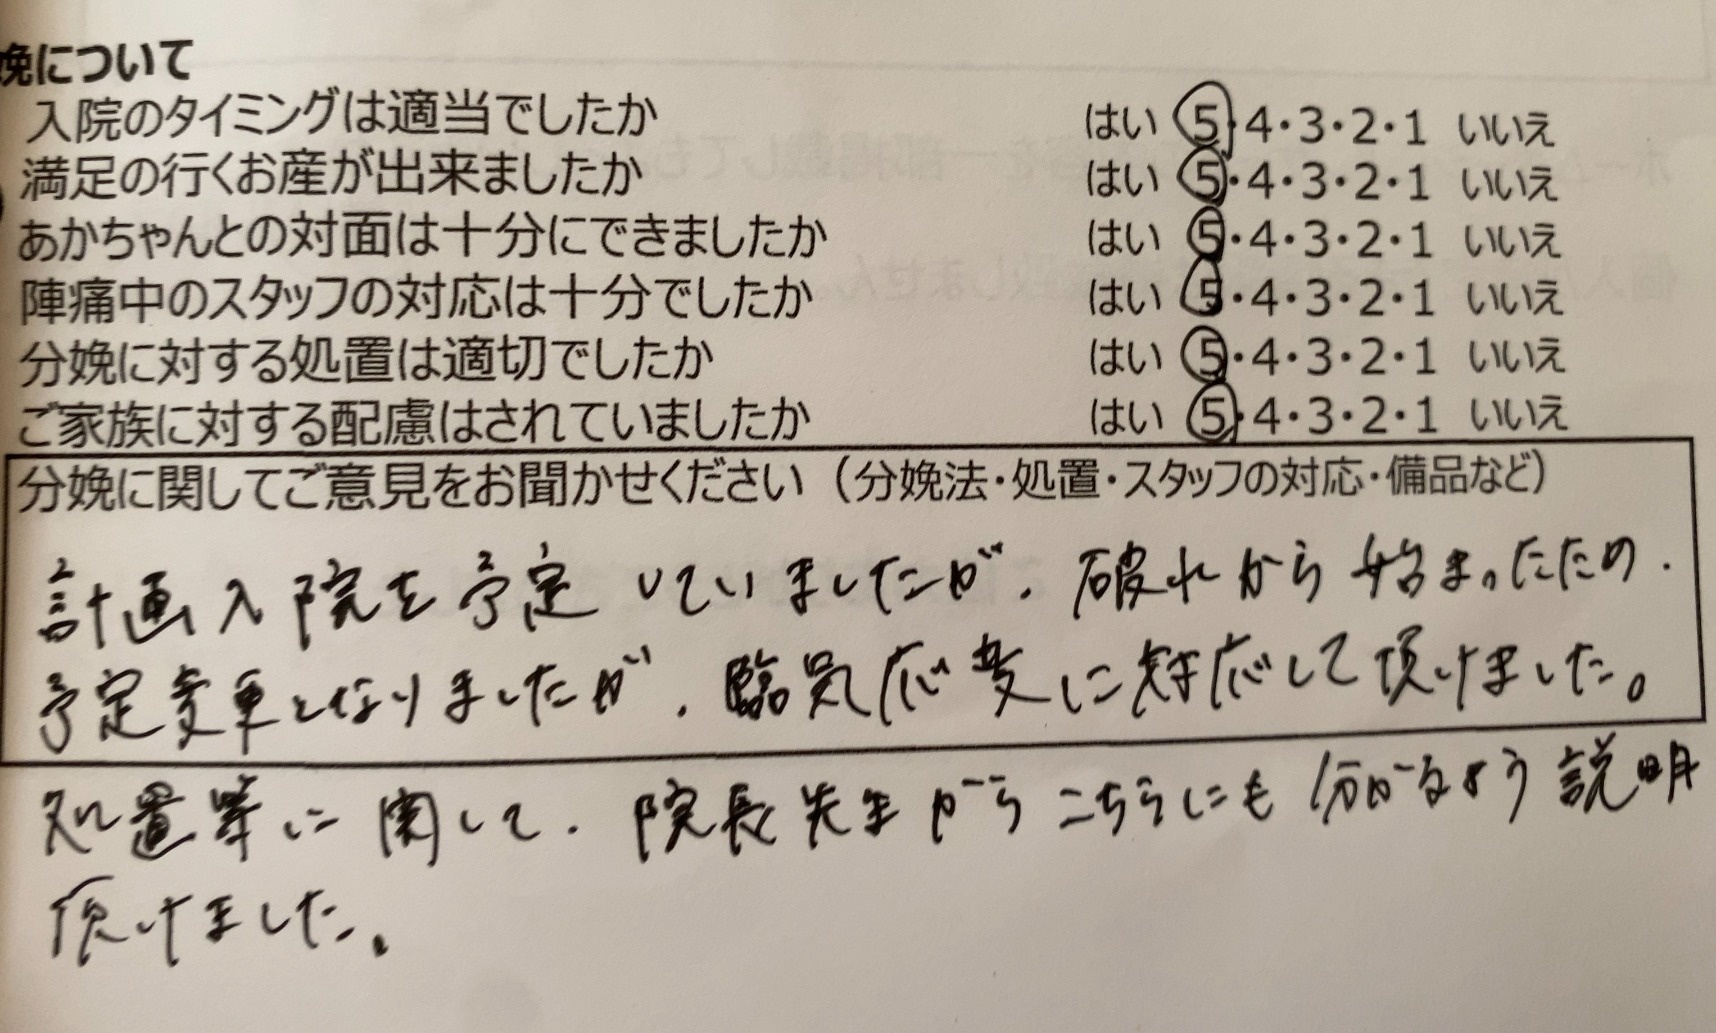 娩について
入院のタイミングは適当でしたか はい 5・4・3・2・1 いいえ
満足の行くお産が出来ましたか はい 5・4・3・2・1 いいえ
あかちゃんとの対面は十分にできましたか はい 5・4・3・2・1 いいえ
陣痛中のスタッフの対応は十分でしたか はい 5・4・3・2・1 いいえ
分娩に対する処置は適切でしたか はい 5・4・3・2・1 いいえ
ご家族に対する配慮はされていましたか はい 5・4・3・2・1 いいえ
分娩に関してご意見をお聞かせください（分娩法・処置・スタッフの対応・備品など）
計画入院を予定していましたが、破水から始まったため、
予定変更となりましたが、臨気応変に対応して頂けました。
処置等に関して、院長先生からこちらにも分かるよう説明
頂けました。